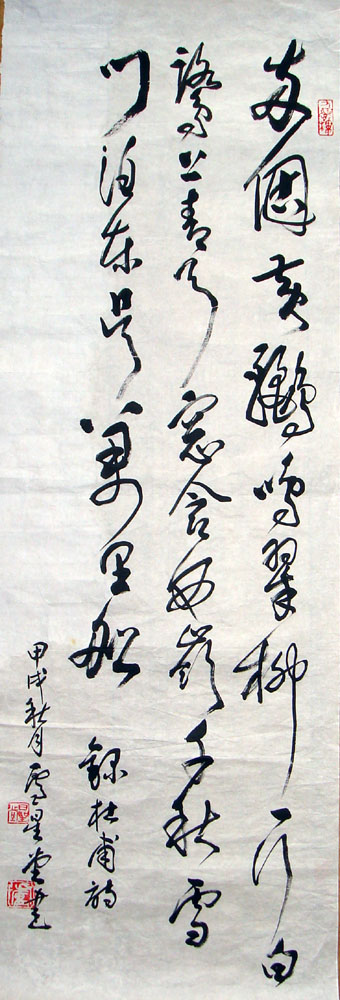 兩個黃鸝鳴翠柳一行白
鷺上青天窓含西嶺千秋雪
門泊東吳萬里船
錄杜甫詩
甲戌秋月